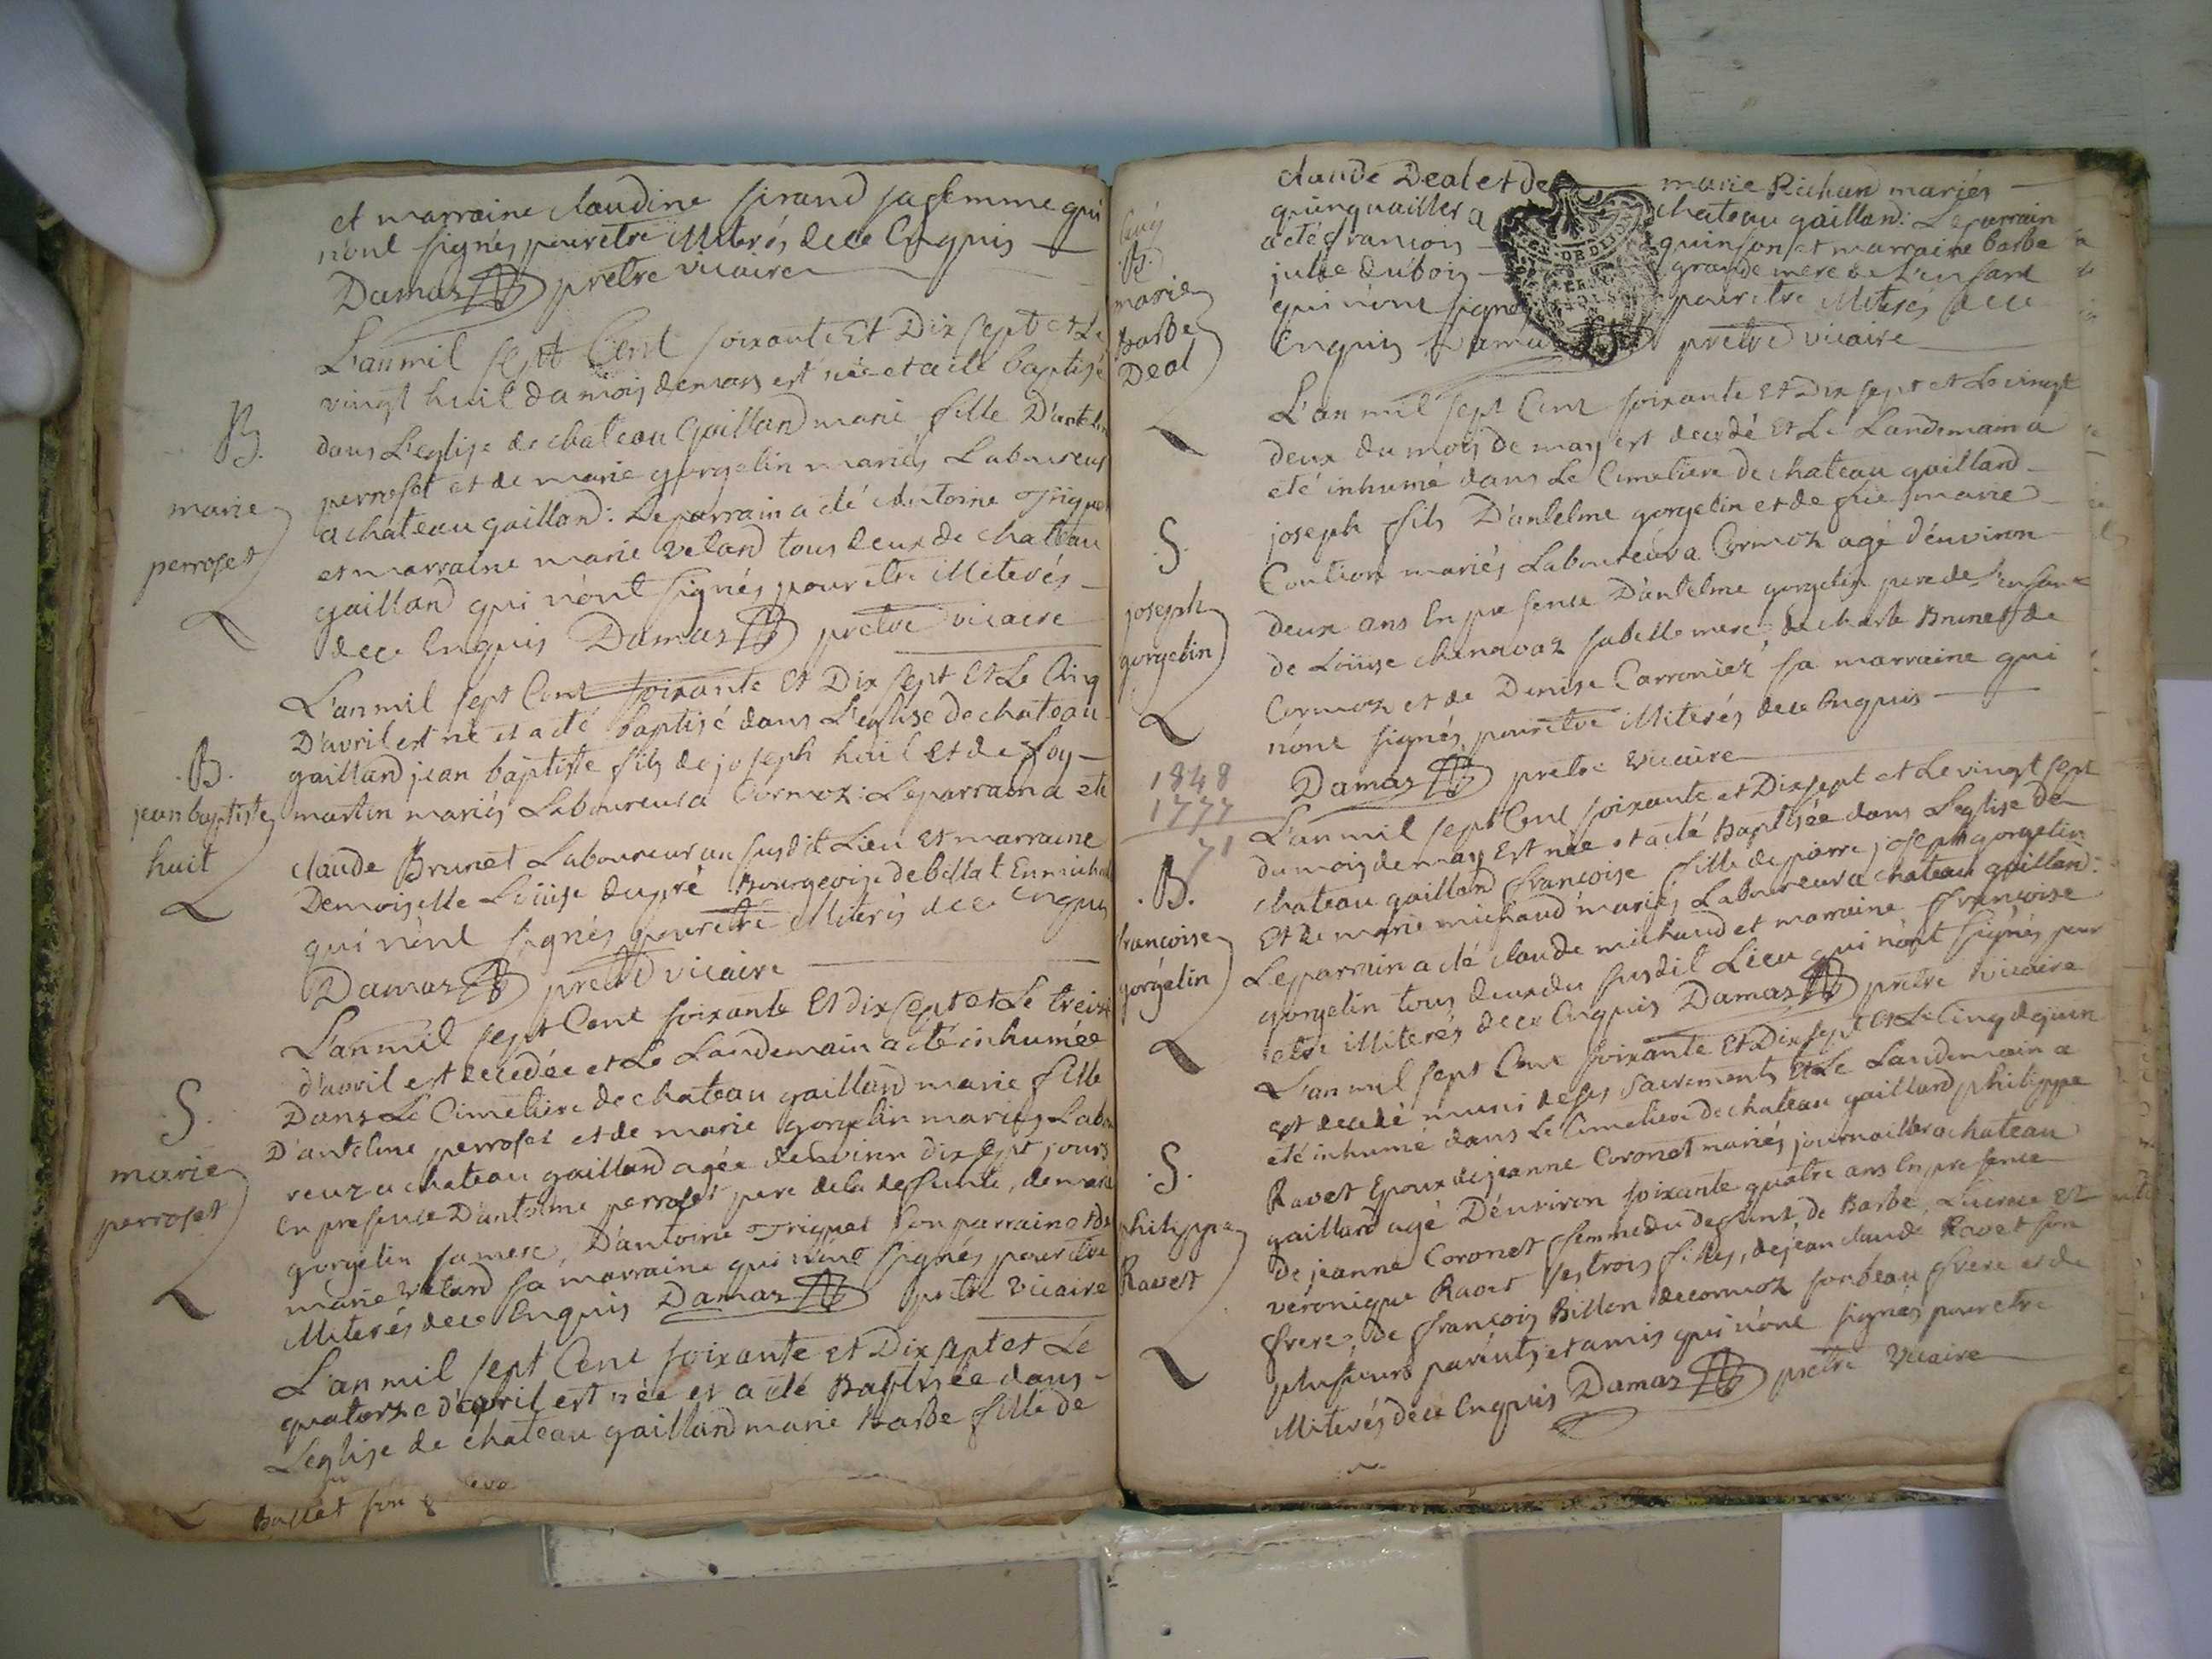 et marraine claudine sirand sa femme qui
n'ont signés pour etre illiterés de ce Enquis
Damaz pretre vicaire
L'an mil sept Cent soixante Et Dix sept et Le
vingt huit du mois de mars est née et a eté baptisé
dans L'eglise de chateau Gaillard marie fille D'antelme
B.
marie
perroset
perroset et de marie gorgelin mariés Laboureur
a chateau gaillard: Le parrain a eté Antoine Triquet
et marraine marie velard tous deux de chateau
gaillard qui n'ont signés pour etre illiterés
de ce Enquis Damaz pretre vicaire
L'an mil sept Cent soixante Et Dix sept Et Le Cinq
D'avril est né et a eté baptisé dans L'eglise de chateau
B.
jean baptiste
huit
gaillard jean baptiste fils de joseph huit et de foy
martin mariés Laboureur a Cormoz: Le parrain a eté
claude Brunet Laboureur au susdit Lieu et marraine
Demoiselle Loüise dupré Bourgeoise de billat
qui n'ont signés pour etre illiterés de ce enquis
Damaz pretre vicaire
L'an mil sept Cent soixante Et dix sept et Le treize
d'avril est decedée et Le Landemain a eté inhumée
S.
marie
perroset
Dans Le Cimetiere de chateau gaillard marie fille
D'antelme perroset et de marie gorgelin mariés Labou
reur a chateau gaillard agée denviron dix sept jours
En presence D'antelme perroset pere de la defunte, de marie
gorgelin sa mere, D'antoine Triquet son parrain et de
marie velard sa marraine qui n'ont signés pour etre
illiterés de ce Enquis Damaz pretre vicaire
L'an mil sept Cent soixante et Dix sept et Le
quatorze d'avril est née et a eté Baptisée dans
L'eglise de chateau gaillard marie Barbe fille de
Ballet son
claude Deal et de marie Richard mariés
quinquailler a chateau gaillard: Le parrain
a eté francois quinson et marraine barbe
B.
marie
Barbe
Deal
julie dubois grande mere de L'enfant
qui n'ont signés pour etre illiterés de ce
Enquis Damaz pretre vicaire
L'an mil sept Cent soixante Et Dix sept et Le vingt
deux du mois de may est decedé Et Le Landemain a
eté inhumé dans Le Cimetiere de chateau gaillard
S.
joseph
gorgelin
joseph fils D'antelme gorgelin et de füe marie
Coution mariés Laboureur a Cormoz agé d'environ
deux ans En presence D'antelme gorgelin pere de L'enfant
de Loüise chenavaz sa belle mere, de charle Brunet de
Cormoz et de Denise Carronier sa marraine qui
n'ont signés pour etre illiterés de ce Enquis
Damaz pretre vicaire
1848
1777
71
L'an mil sept Cent soixante et Dix sept et Le vingt sept
du mois de may Est née et a eté Baptisée dans L'eglise de
B.
francoise
gorgelin
chateau gaillard francoise fille de pierre joseph gorgelin
Et de marie michaud mariés Laboureur a chateau gaillard:
Le parrain a eté claude michaud et marraine francoise
gorgelin tous deux du susdit Lieu qui n'ont signés pour
etre illiterés de ce Enquis Damaz pretre vicaire
L'an mil sept Cent soixante Et Dix sept et Le Cinq de juin
est decedé muni de ses sacrements Et Le Landemain a
eté inhumé dans Le Cimetiere de chateau gaillard philippe
S.
philippe
Ravet
Ravet Epoux de jeanne Coronet mariés journailler a chateau
gaillard agé D'environ soixante quatre ans En presence
De jeanne Coronet femme du defunt, de Barbe, Lucrece Et
véronique Ravet ses trois filles, de jean claude Ravet son
frere, de françois Billon de cormoz son beau frere et de
plusieurs parents et amis qui n'ont signés pour etre
illiterés de ce Enquis Damaz pretre vicaire